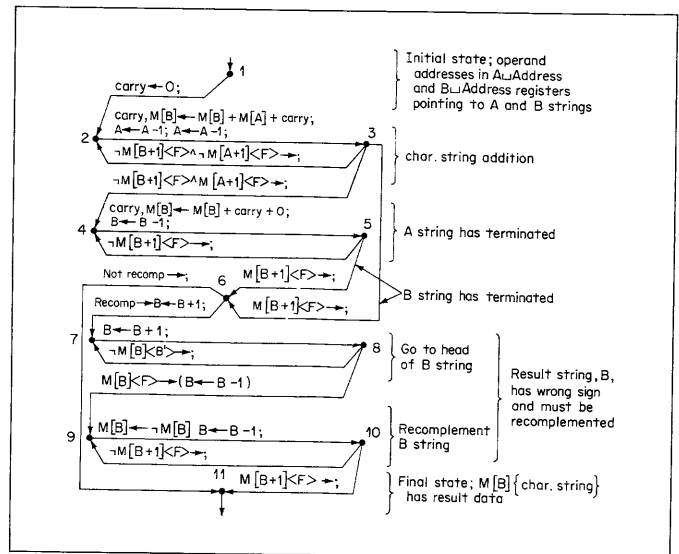 1
Initial state; operand
addresses in A⊔Address
and B⊔Address registers
pointing to A and B strings
carry←0;
carry, M[B]← M[B] + M[A] + carry;
A←A-1; A←A-1;
2
3
¬M[B+1]<F>∧¬M[A+1]<F>→;
char. string addition
¬M[B+1]<F>∧M[A+1]<F>→;
carry, M[B]← M[B] + carry + 0;
B←B-1;
4
5
¬M[B+1]<F>→;
A string has terminated
Not recomp→;
6
M[B+1]<F>→;
Recomp→B←B+1;
M[B+1]<F>→;
B string has terminated
B←B+1;
7
8
¬M[B]<B'>→;
Go to head
of B string
M[B]<F>→(B←B-1)
Result string, B,
has wrong sign
and must be
recomplemented
M[B]←¬M[B] B←B-1;
9
10
¬M[B+1]<F>→;
Recomplement
B string
11
M[B+1]<F>→;
Final state; M[B]{char. string}
has result data